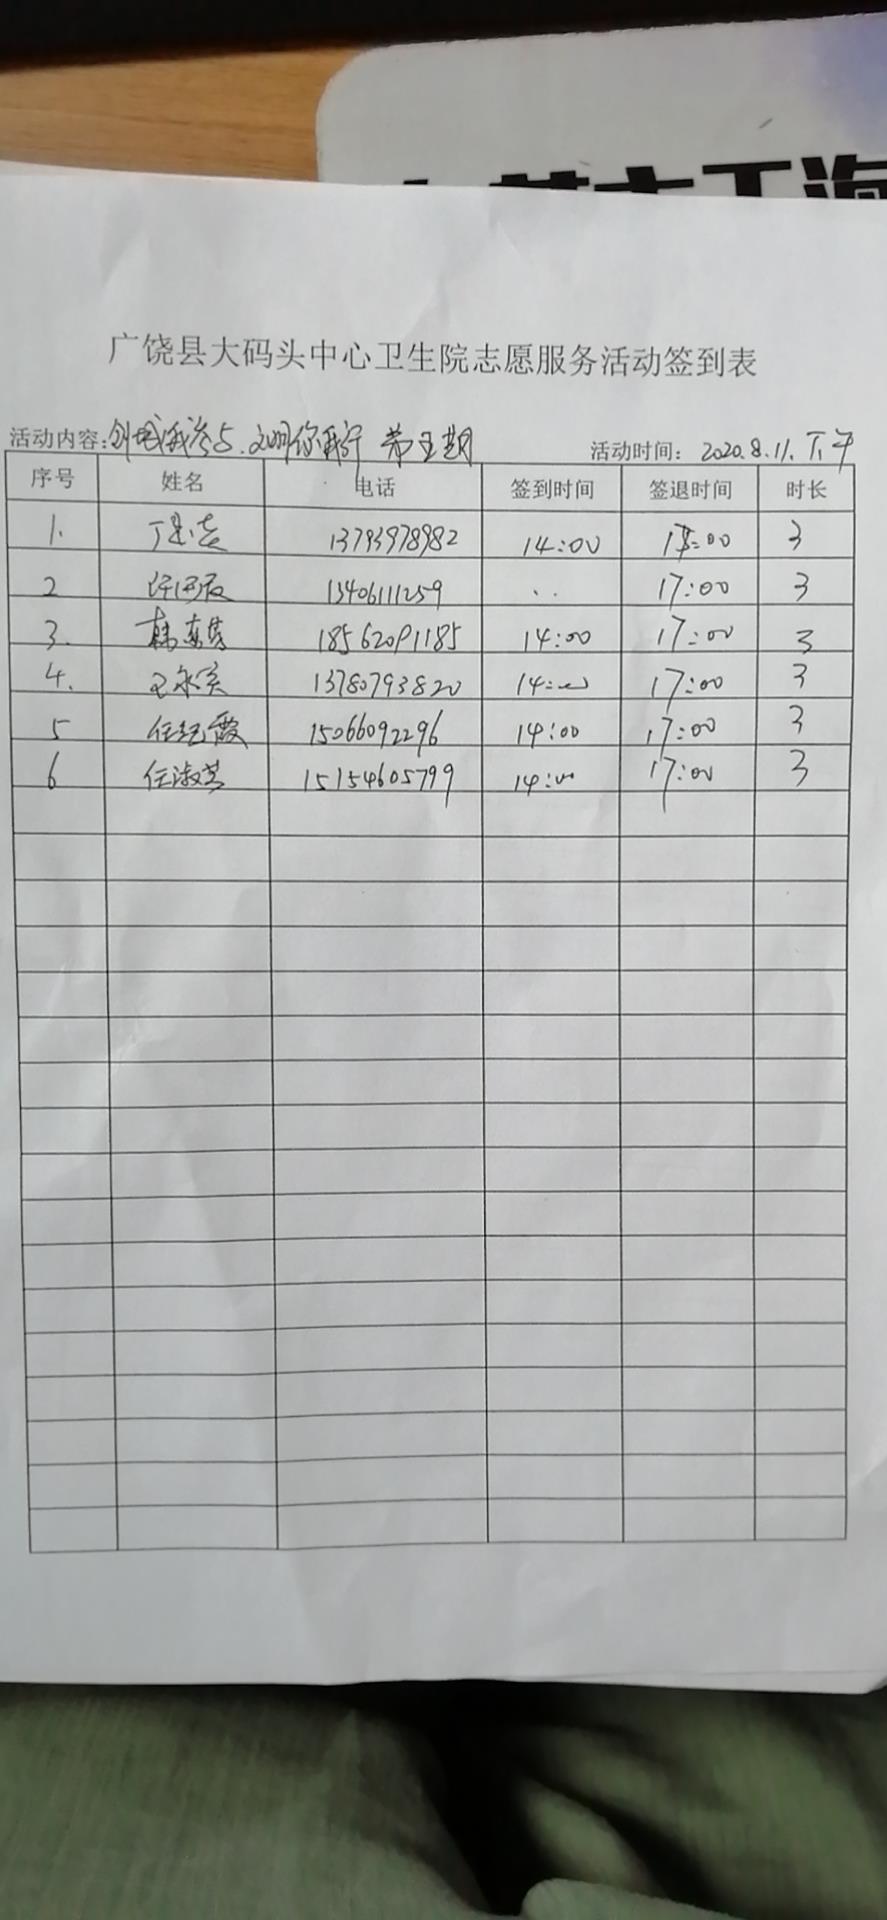 广饶县大码头中心卫生院志愿服务活动签到表
活动内容:创城我参与.文明你我行 第五期 活动时间: 2020.8.11.下午
序号 姓名 电话 签到时间 签退时间 时长
1. 13793978982 14:00 17:00 3
2 13406111259 .. 17:00 3
3. 18562091185 14:00 17:00 3
4. 王永宾 13780793820 14:00 17:00 3
5 任红霞 15066092296 14:00 17:00 3
6 任淑芸 15154605799 14:00 17:00 3